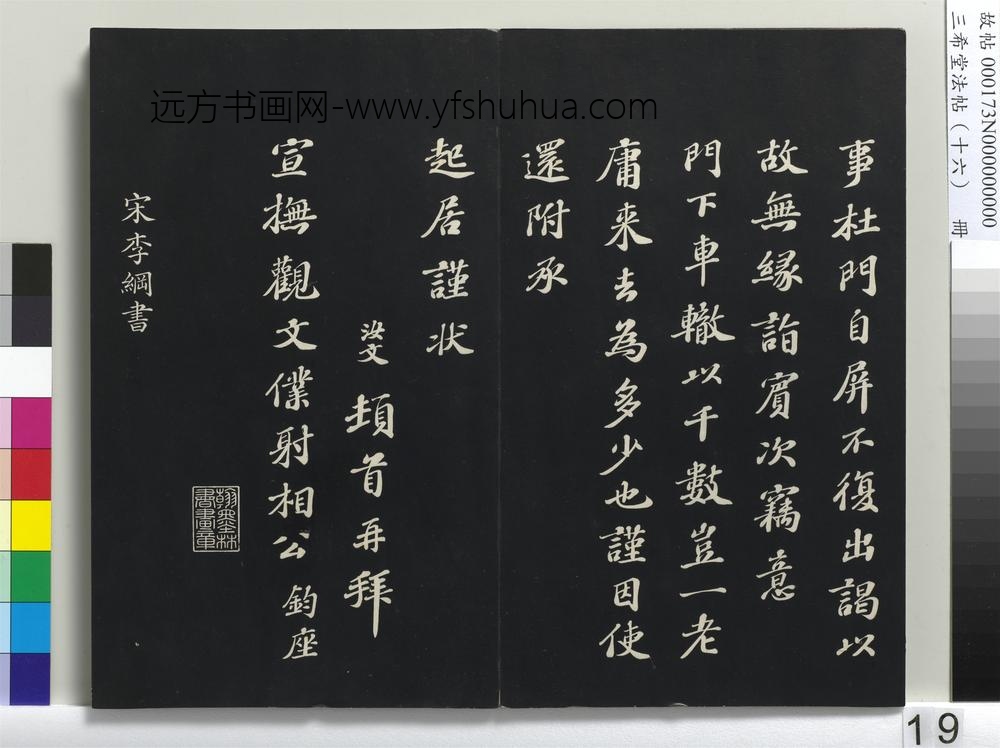 故帖 000173N000000000
三希堂法帖（十六） 冊
远方书画网-www.yfshuhua.com
事杜門自屏不復出謁以
故無緣詣賓次竊意
門下車轍以千數豈一老
庸来去為多少也謹因使
還附承
起居謹状
汝文頓首再拜
宣撫觀文僕射相公鈞座
翰墨林書畫章
宋李綱書
19